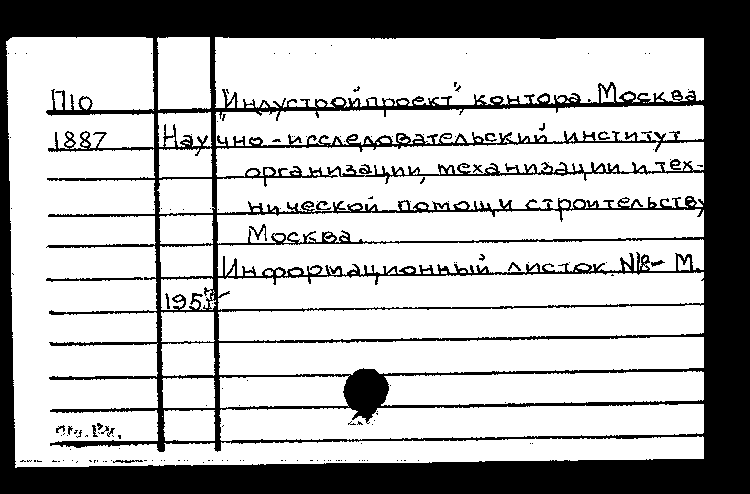 П10 "Индустройпроект", контора. Москва
1887 Научно-исследовательский институт
организации, механизации и тех-
нической помощи строительству
Москва.
Информационный листок. М.,
195